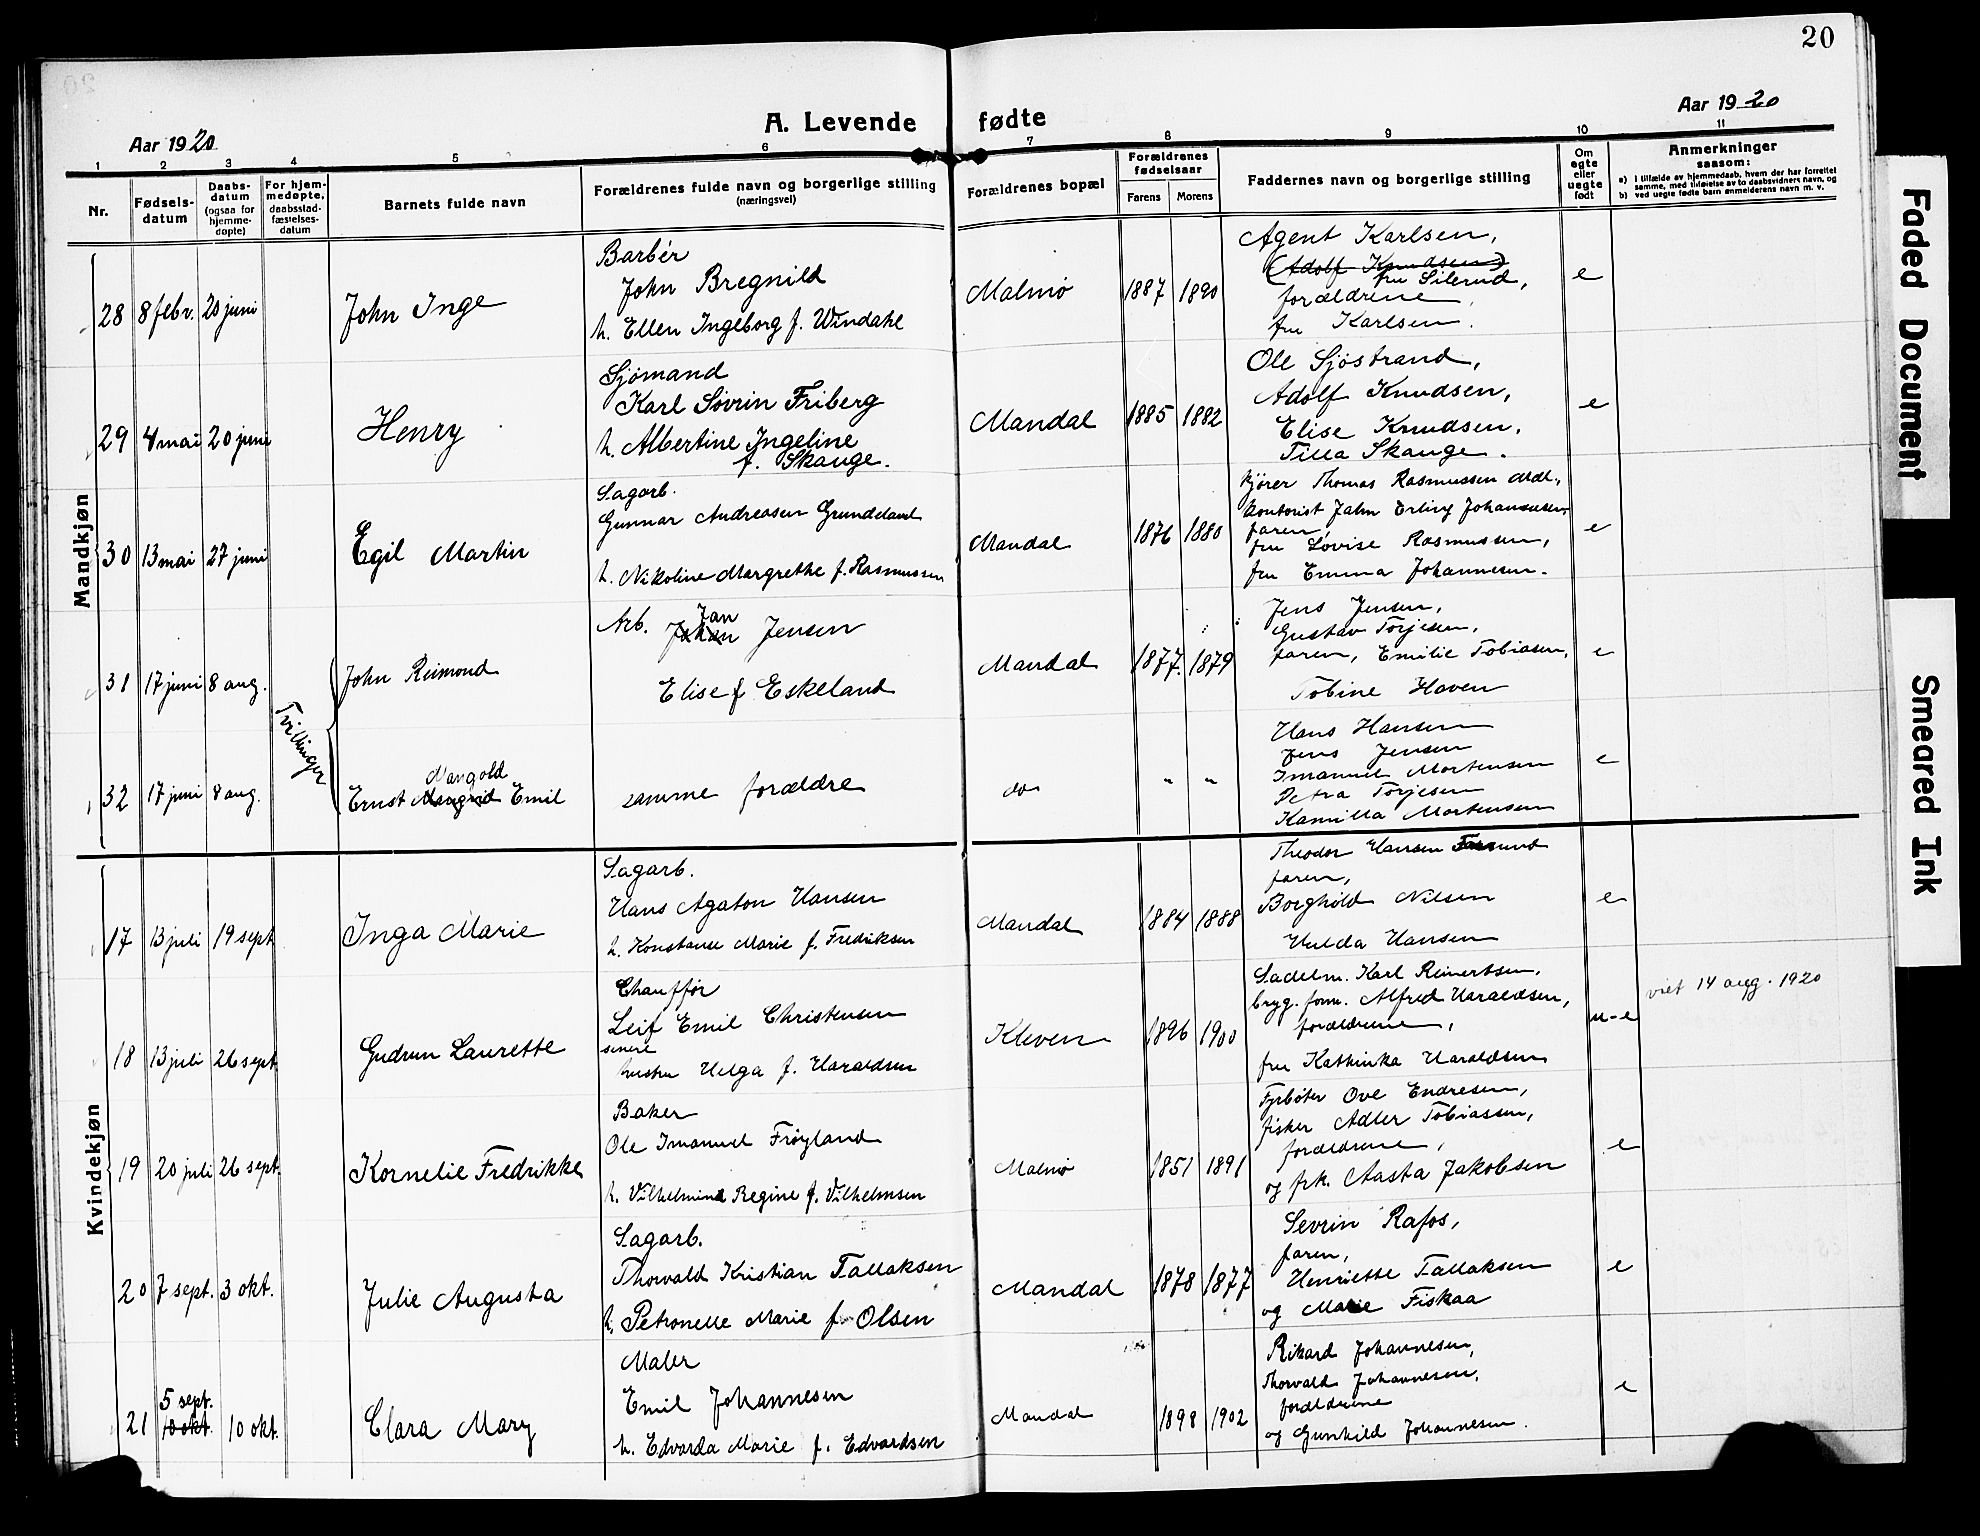 20
Aar 1920
A. Levende fødte
Aar 1920
1 2 3 4 5 6 7 8 9 10 11
Nr.
Fødsels-
datum
Daabs-
datum
(ogsaa for
hjemme-
døpte)
For hjem-
medøpte,
daabsstad-
fæstelses-
datum
Barnets fulde navn
Forældrenes fulde navn og borgerlige stilling
(næringsvei)
Forældrenes bopæl
Forældrenes
fødselsaar
Farens Morens
Faddernes navn og borgerlige stilling
Om
egte
eller
uegte
født
Anmerkninger
saasom:
a) i tilfælde av hjemmedaab, hvem der har forrettet
samme, med tilføielse av to daabsvidners navn, og
b) ved uegte fødte barn anmelderens navn m. v.
Mandkjøn
28 8 febr. 20 juni
John Inge
Barbér
John Bregnild
h. Ellen Ingeborg f. Windahl
Malmø 1887 1890
Agent Karlsen,
(Adolf Knudsen)
fru Silerud,
forældrene,
fru Karlsen.
e
29 4 mai 20 juni
Henry
Sjømand
Karl Søvrin Friberg
h. Albertine Ingeline
f. Skauge.
Mandal 1885 1882
Ole Sjøstrand,
Adolf Knudsen,
Elise Knudsen,
Tilla Skauge.
e
30 13 mai 27 juni
Egil Martin
Sagarb.
Gunnar Andreasen Grundeland
h. Nikoline Margrethe f. Rasmussen
Mandal 1876 1880
Kjører Thomas Rasmussen
Kontorist John Erling Johannesen,
faren,
fru Lovise Rasmussen,
fru Emma Johannesen.
e
31 17 juni 8 aug.
Tvillinger
John Reimond
Arb. Johan Jan Jensen
Elise f Eskeland
Mandal 1877. 1879
Jens Jensen,
Gustav Torjesen,
faren, Emilie Tobiasen,
Tobine Haven
e
32 17 juni 8 aug.
Mangold
Ernst Emil
samme forældre
do " "
Hans Hansen
Jens Jensen
Imanuel Mortensen
Petra Torjesen
Kamilla Mortensen
e
Kvindekjøn
17 13 juli 19 sept.
Inga Marie
Sagarb.
Hans Agaton Hansen
h. Konstanse Marie f. Fredriksen
Mandal 1884 1888
Theodor Hansen Farsund
faren,
Borghild Nilsen
Hulda Hansen
e
18 13 juli 26 sept.
Gudrun Laurette
Chauffør
Leif Emil Christensen
senere
hustru Helga f. Haraldsen
Kleven 1896 1900
Sadelm. Karl Reinertsen,
bryg. form. Alfred Haraldsen,
forældrene,
fru Kathinka Haraldsen
u-e
viet 14 aug. 1920
19 20 juli 26 sept.
Kornelie Fredrikke
Baker
Ole Imanuel Frøyland
h. Vilhelmine Regine f. Vilhelmsen
Malmø 1851 1891
Fyrbøter Ove Endresen,
fisker Adler Tobiassen,
forældrene,
og frk. Aasta Jakobsen
e
20 7 sept. 3 okt.
Julie Augusta
Sagarb.
Thorvald Kristian Tallaksen
h. Petronelle Marie f. Olsen
Mandal 1878 1877
Sevrin Rafos,
faren,
Henriette Tallaksen
og Marie Fiskaa
e
21 5 sept. 10 okt. 10 okt.
Clara Mary
Maler
Emil Johannesen
h. Edvarda Marie f. Edvardsen
Mandal 1898 1902
Rikard Johannesen,
Thorvald Johannesen,
forældrene
og Gunhild Johannesen.
e
Faded Document
Smeared Ink